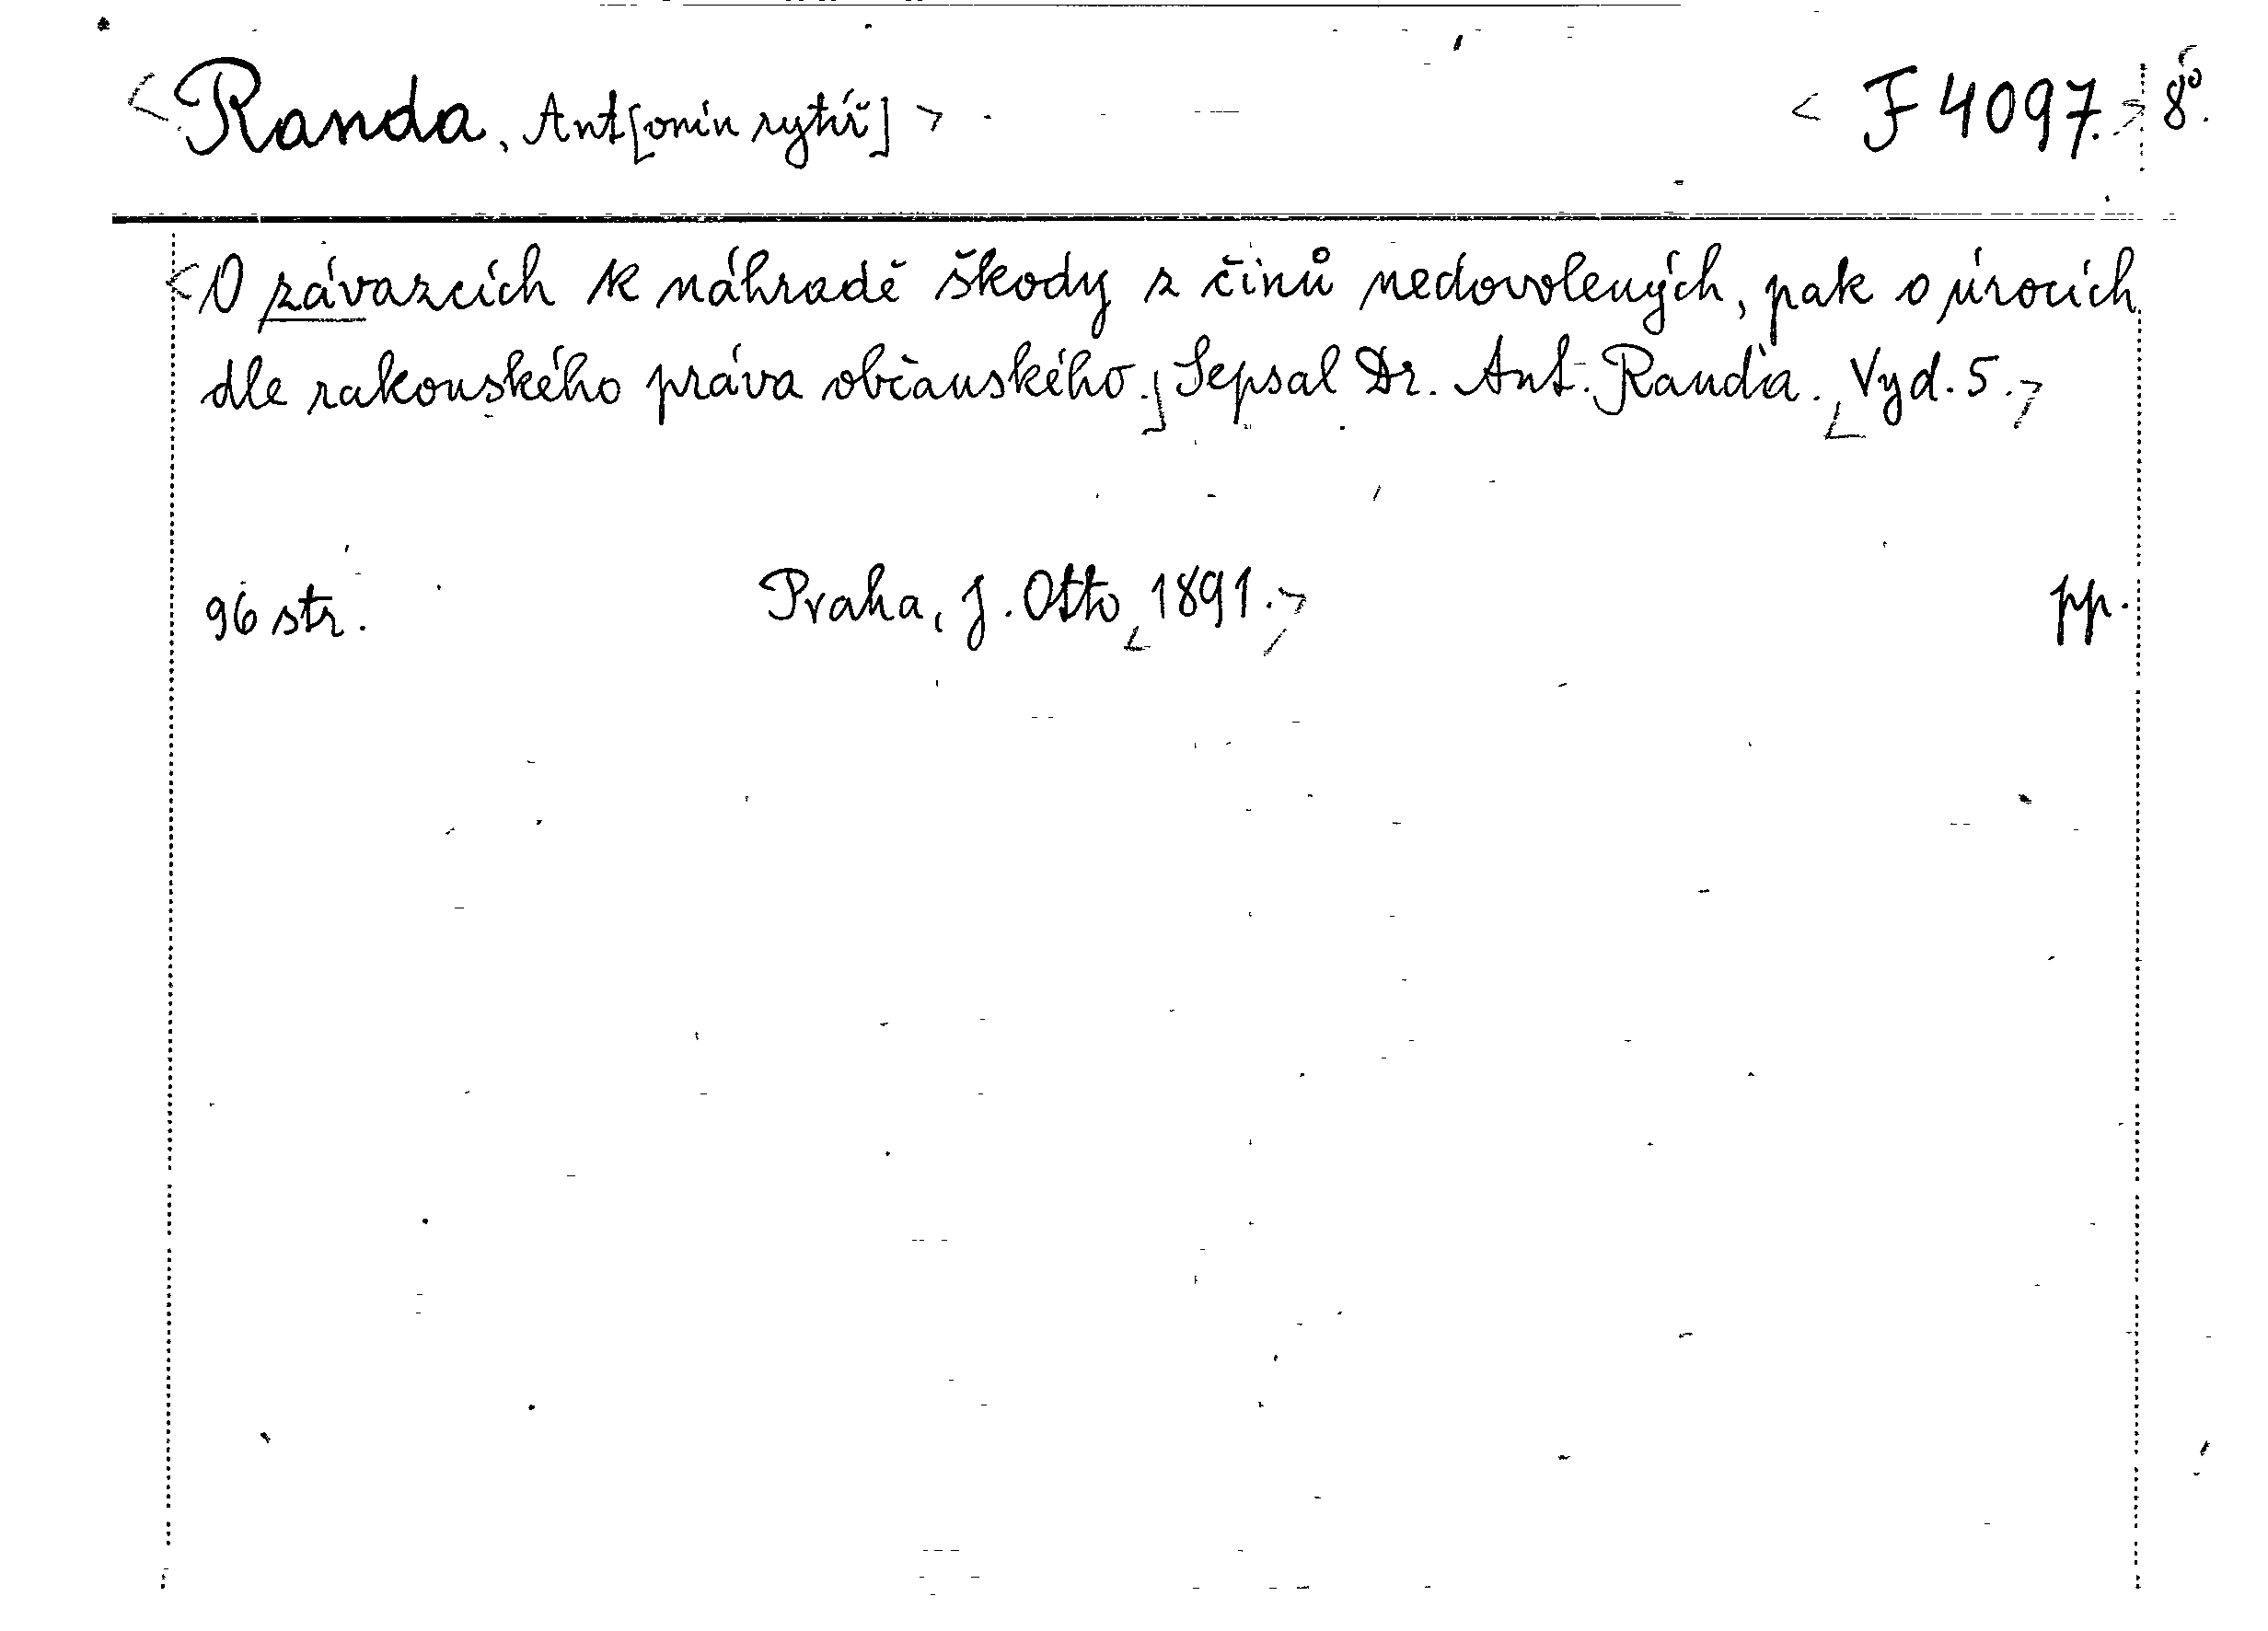 <Randa, Ant[onín rytíř]> <F 4097.> 8°.
<O závazcích k náhradě škody z činů nedovolených, pak o úrocích
dle rakouského práva občanského.] Sepsal Dr. Ant. Randa. <Vyd. 5.>
96 str. Praha, J. Otto, <1891.> pp.